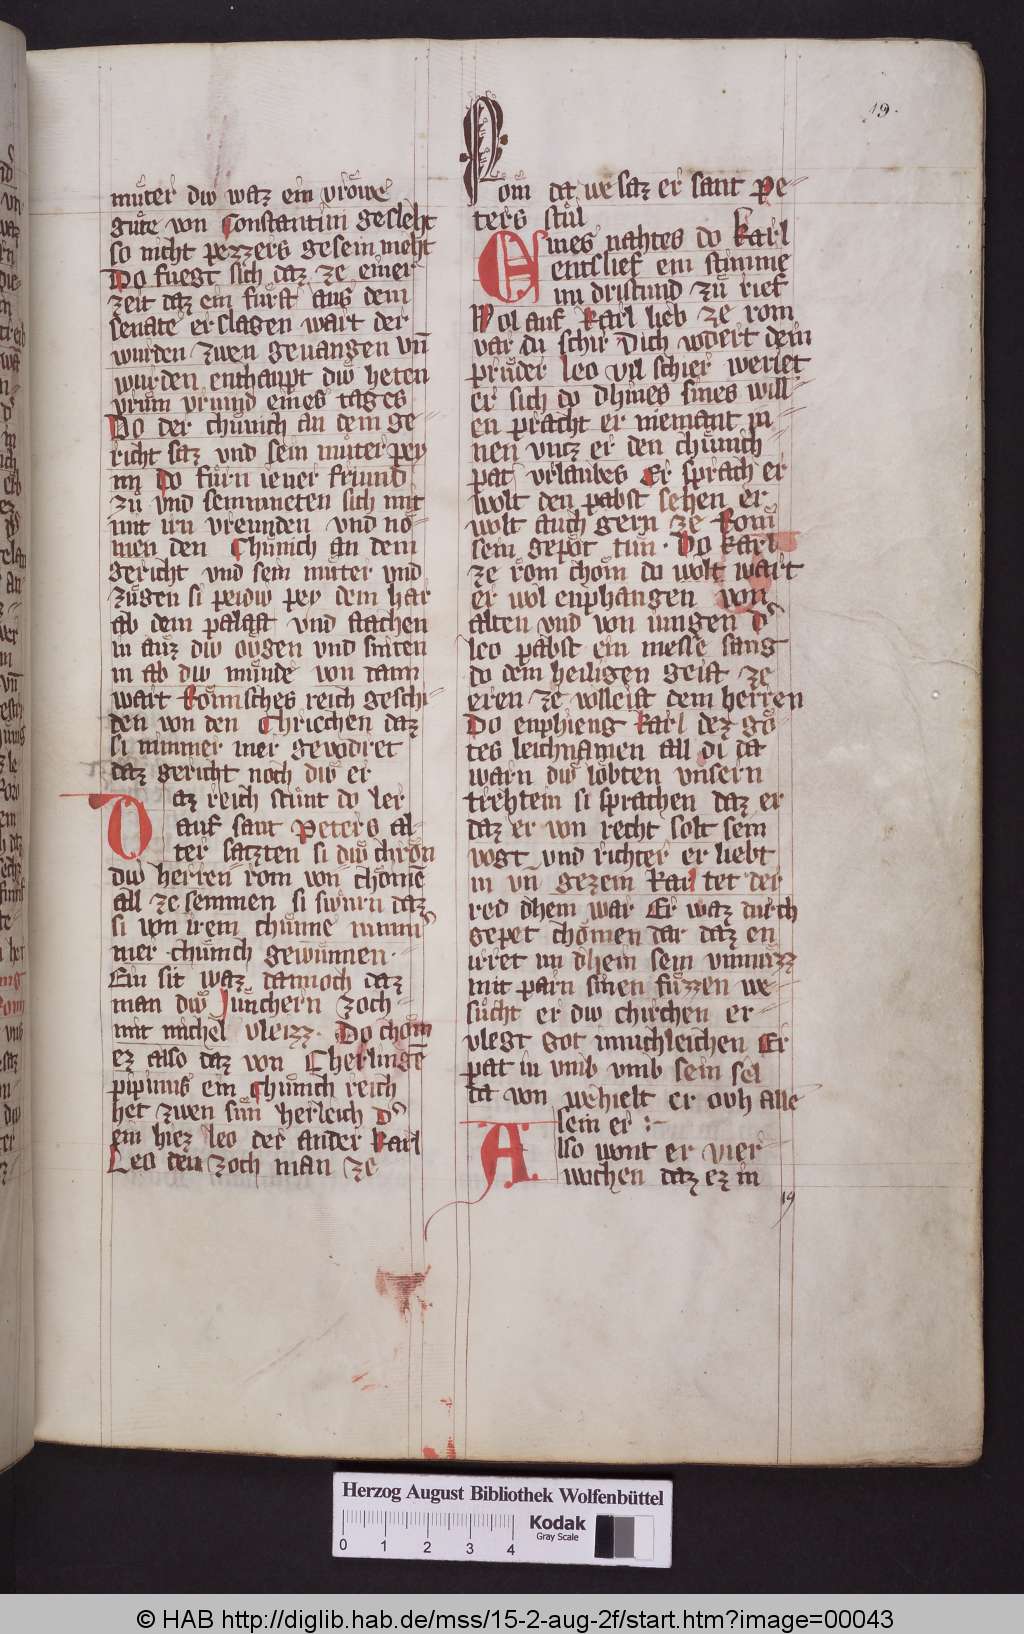 19.
muͤter diw waz ein vrowe
guͤte von Constantini gesleht
so nicht pezzers gesein meht
Do fuegt sich daz ze einer
zeit daz ein fuͤrst aus dem
senate erslagen wart der
wurden zwen geuangen vn̄
wurden enthaupt diw heten
vrum vriund eines tages
Do der chuͤnich an dem ge
richt saz vnd sein muͤter pey
im Do fuͤrn iener friund
zuͤ vnd semnneten sich mit
mit irn vreunden vnd no-
men den Chunich an dem
gericht vnd sein muͤter vnd
zuͤgen si peidiw pey dem har
ab dem palast vnd stachen
in auz diw ovgen vnd sniten
in ab diw munde von dann
wart Roͤmisches reich geschi-
den von den Chriechen daz
si nimmer mer gevodret
daz gericht noch diw er
Daz reich stuͤnt do ler
auf sant Peters al-
ter satzten si diw chron
diw herren rom von chomē
all ze semmen si swurn daz
si von irem chunne nimm̄
mer chunich gewunnen.
Ein sit waz dannoch daz
man diw Junchern zoch-
mit michel vleizz. Do chom
ez also daz von Cherlingē
pipinus ein chunich reich
het zwen sun herleich d̾
ein hiez leo der ander karl
Leo den zoch man ze
Rom da we saz er sant Pe-
ters stuͤl
Eines nahtes do karl
entslief ein stimme
im dristund zuͤ rief
Wol auf karl lieb ze rom
var du schir Dich vodert dein
pruͤder leo vil schier weriet
er sich do dhines sines will-
en pracht er niemant in-
nen vntz er den chunich
pat vrlaubes Er sprach er
wolt den pabst sehen er
wolt auch gern ze Rom
sein gepot tuͤn. Do karl
ze rom chom do wolt wart
er wol enphangen von
alten vnd von iungen d̾
leo pabst ein messe sang
do dem heiligen geist ze
eren ze volleist dem herren
Do enphieng karl dez go
tes leichnamen all di da
warn diw lobten vnsern
trehtein si sprachen daz er
daz er von recht solt sein
vogt vnd richter er liebt
in vn̄ gezem karl tet der
red dhein war Er waz durch
gepet chomen dar daz en
irret in dhein sein vnmuzz
mit parn sinen fuͤzzen we-
suͤcht er diw chirchen er-
vlegt got innchleichen Er
pat in vmb vmb sein sel
da von wehielt er ovh alle
sein er :-
Also wont er vier-
wochen daz ez in
19
Herzog August Bibliothek Wolfenbüttel
0 1 2 3 4
Kodak
Gray Scale
© HAB http://diglib.hab.de/mss/15-2-aug-2f/start.htm?image=00043